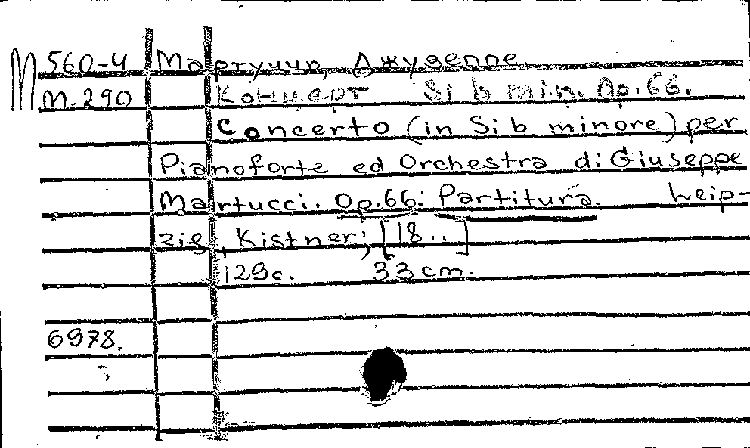 M 560-4 Мартуччи, Джузеппе.
M-290 Концерт Si b min. Op.66.
Concerto (in Si b minore) per
Pianoforte ed Orchestra di Giuseppe
Martucci. Op.66. Partitura. Leip-
zig, Kistner, [18..]
129c. 33 cm.
6978.